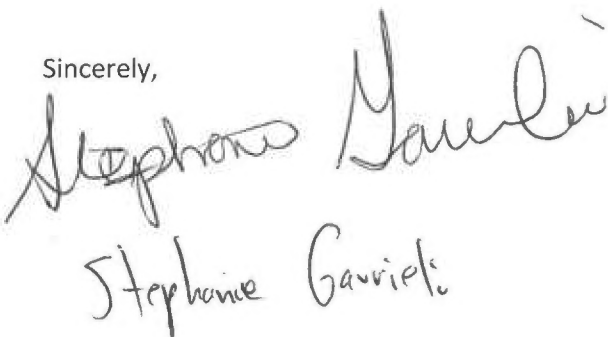 Sincerely,
Stephanie Gavrieli
Stephanie Gavrieli